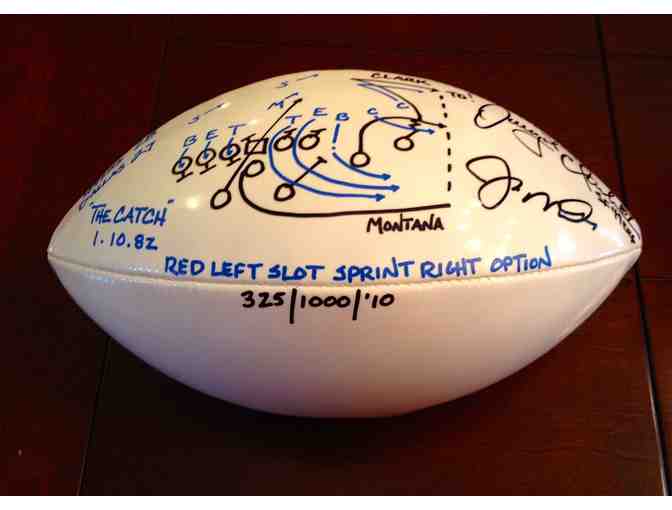 CLARK
S
S
M
TD!
B E T
T E B C C
Dwight Clark
"THE CATCH"
1.10.82
MONTANA
RED LEFT SLOT SPRINT RIGHT OPTION
325/1000/'10